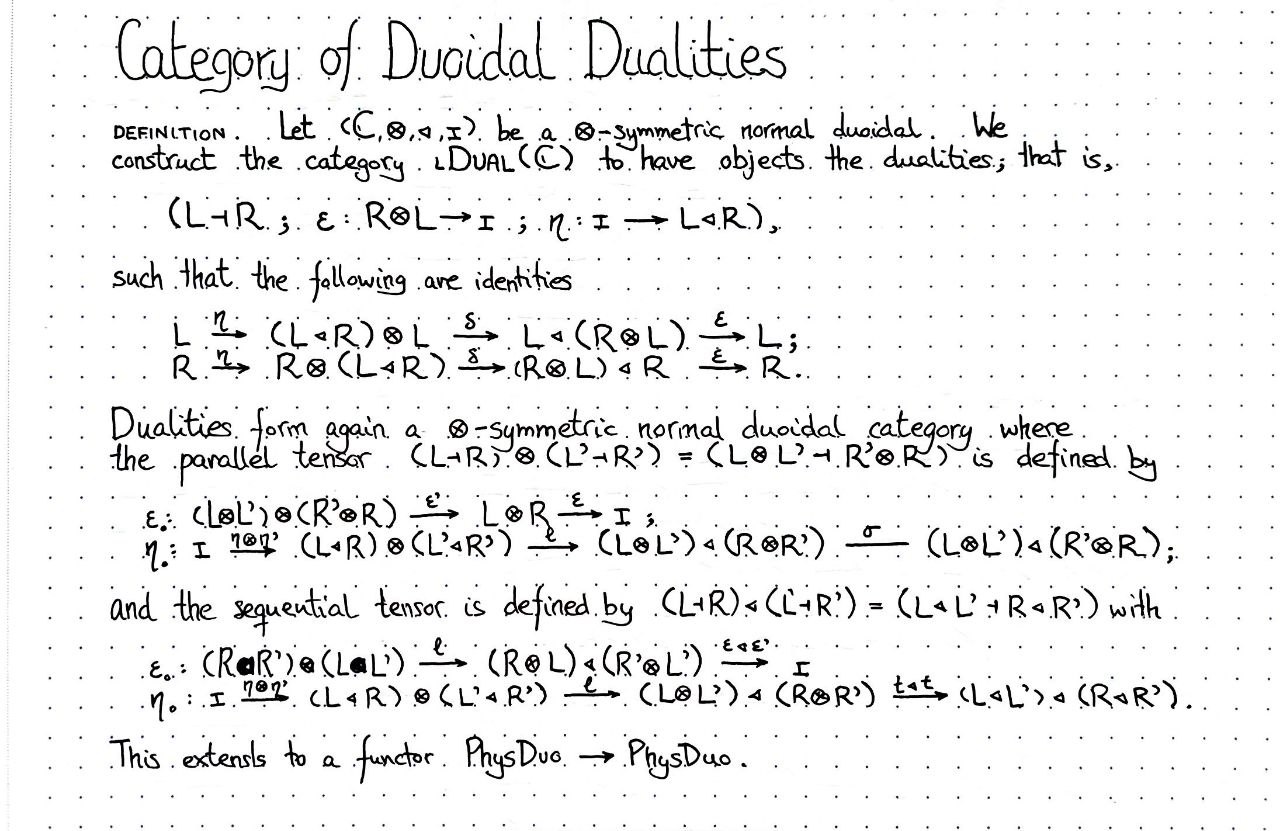 Category of Duoidal Dualities
DEFINITION. Let (ℂ,⊗,◁,I) be a ⊗-symmetric normal duoidal. We
construct the category LDUAL(ℂ) to have objects the dualities; that is,
(L⊣R ; ε: R⊗L → I ; η: I → L◁R),
such that the following are identities
L —η→ (L◁R)⊗L —δ→ L◁(R⊗L) —ε→ L;
R —η→ R⊗(L◁R) —δ→ (R⊗L)◁R —ε→ R.
Dualities form again a ⊗-symmetric normal duoidal category where
the parallel tensor (L⊣R)⊗(L'⊣R') = (L⊗L' ⊣ R'⊗R) is defined by
ε.: (L⊗L')⊗(R'⊗R) —ε'→ L⊗R —ε→ I ;
η.: I —η⊗η'→ (L◁R)⊗(L'◁R') —ℓ→ (L⊗L')◁(R⊗R') —σ— (L⊗L')◁(R'⊗R);
and the sequential tensor is defined by (L⊣R)◁(L'⊣R') = (L◁L' ⊣ R◁R') with
ε₀: (R◁R')⊗(L◁L') —ℓ→ (R⊗L)◁(R'⊗L') —ε◁ε'→ I
η₀: I —η⊗η'→ (L◁R)⊗(L'◁R') —ℓ→ (L⊗L')◁(R⊗R') —t◁t→ (L◁L')◁(R◁R').
This extends to a functor PhysDuo → PhysDuo.